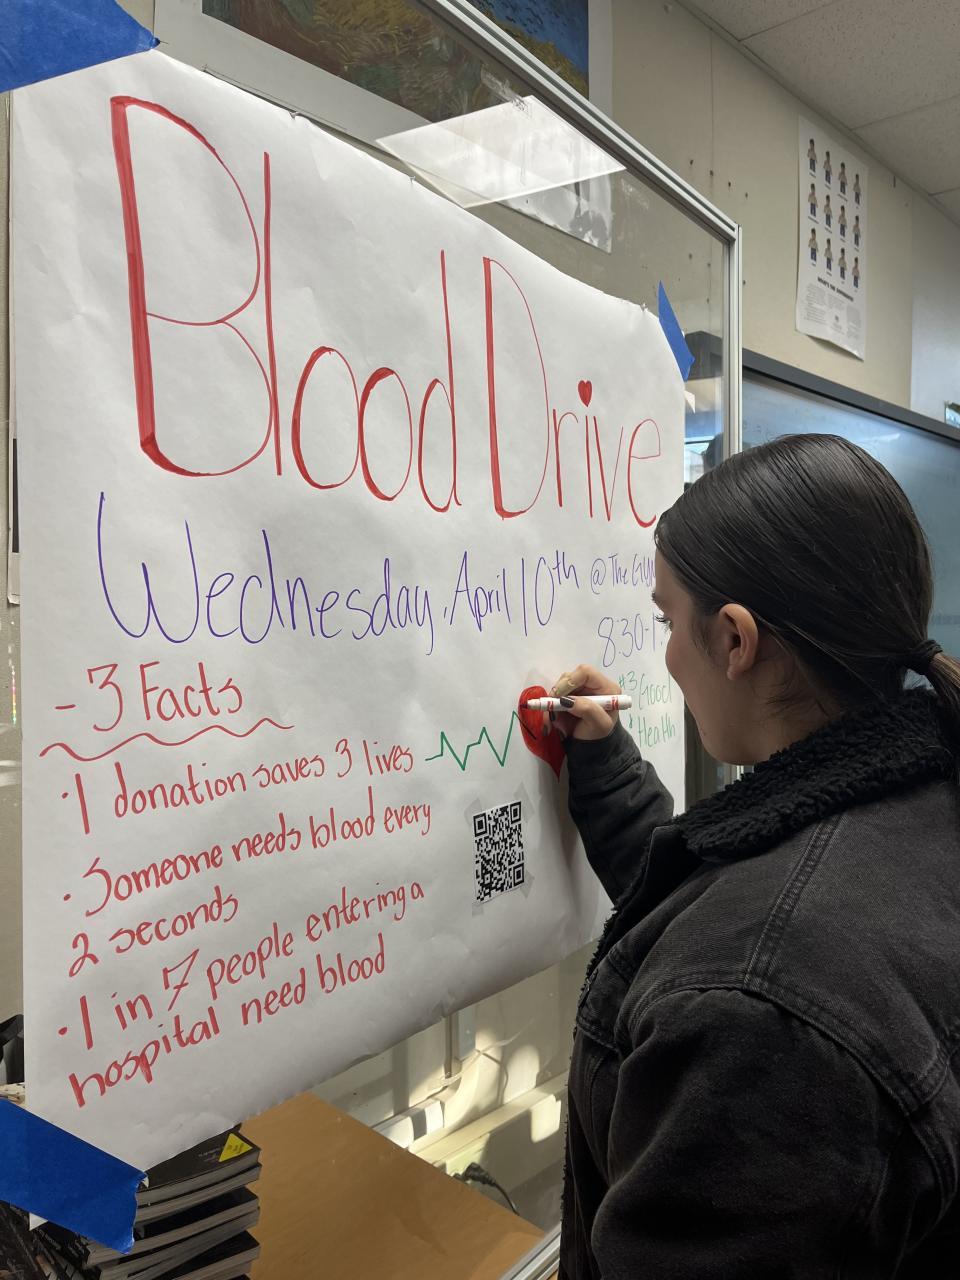 Blood Drive
Wednesday, April 10th @ The
8:30-1
- 3 Facts
#3 Good
Health
· 1 donation saves 3 lives
· Someone needs blood every
2 seconds
· 1 in 7 people entering a
hospital need blood